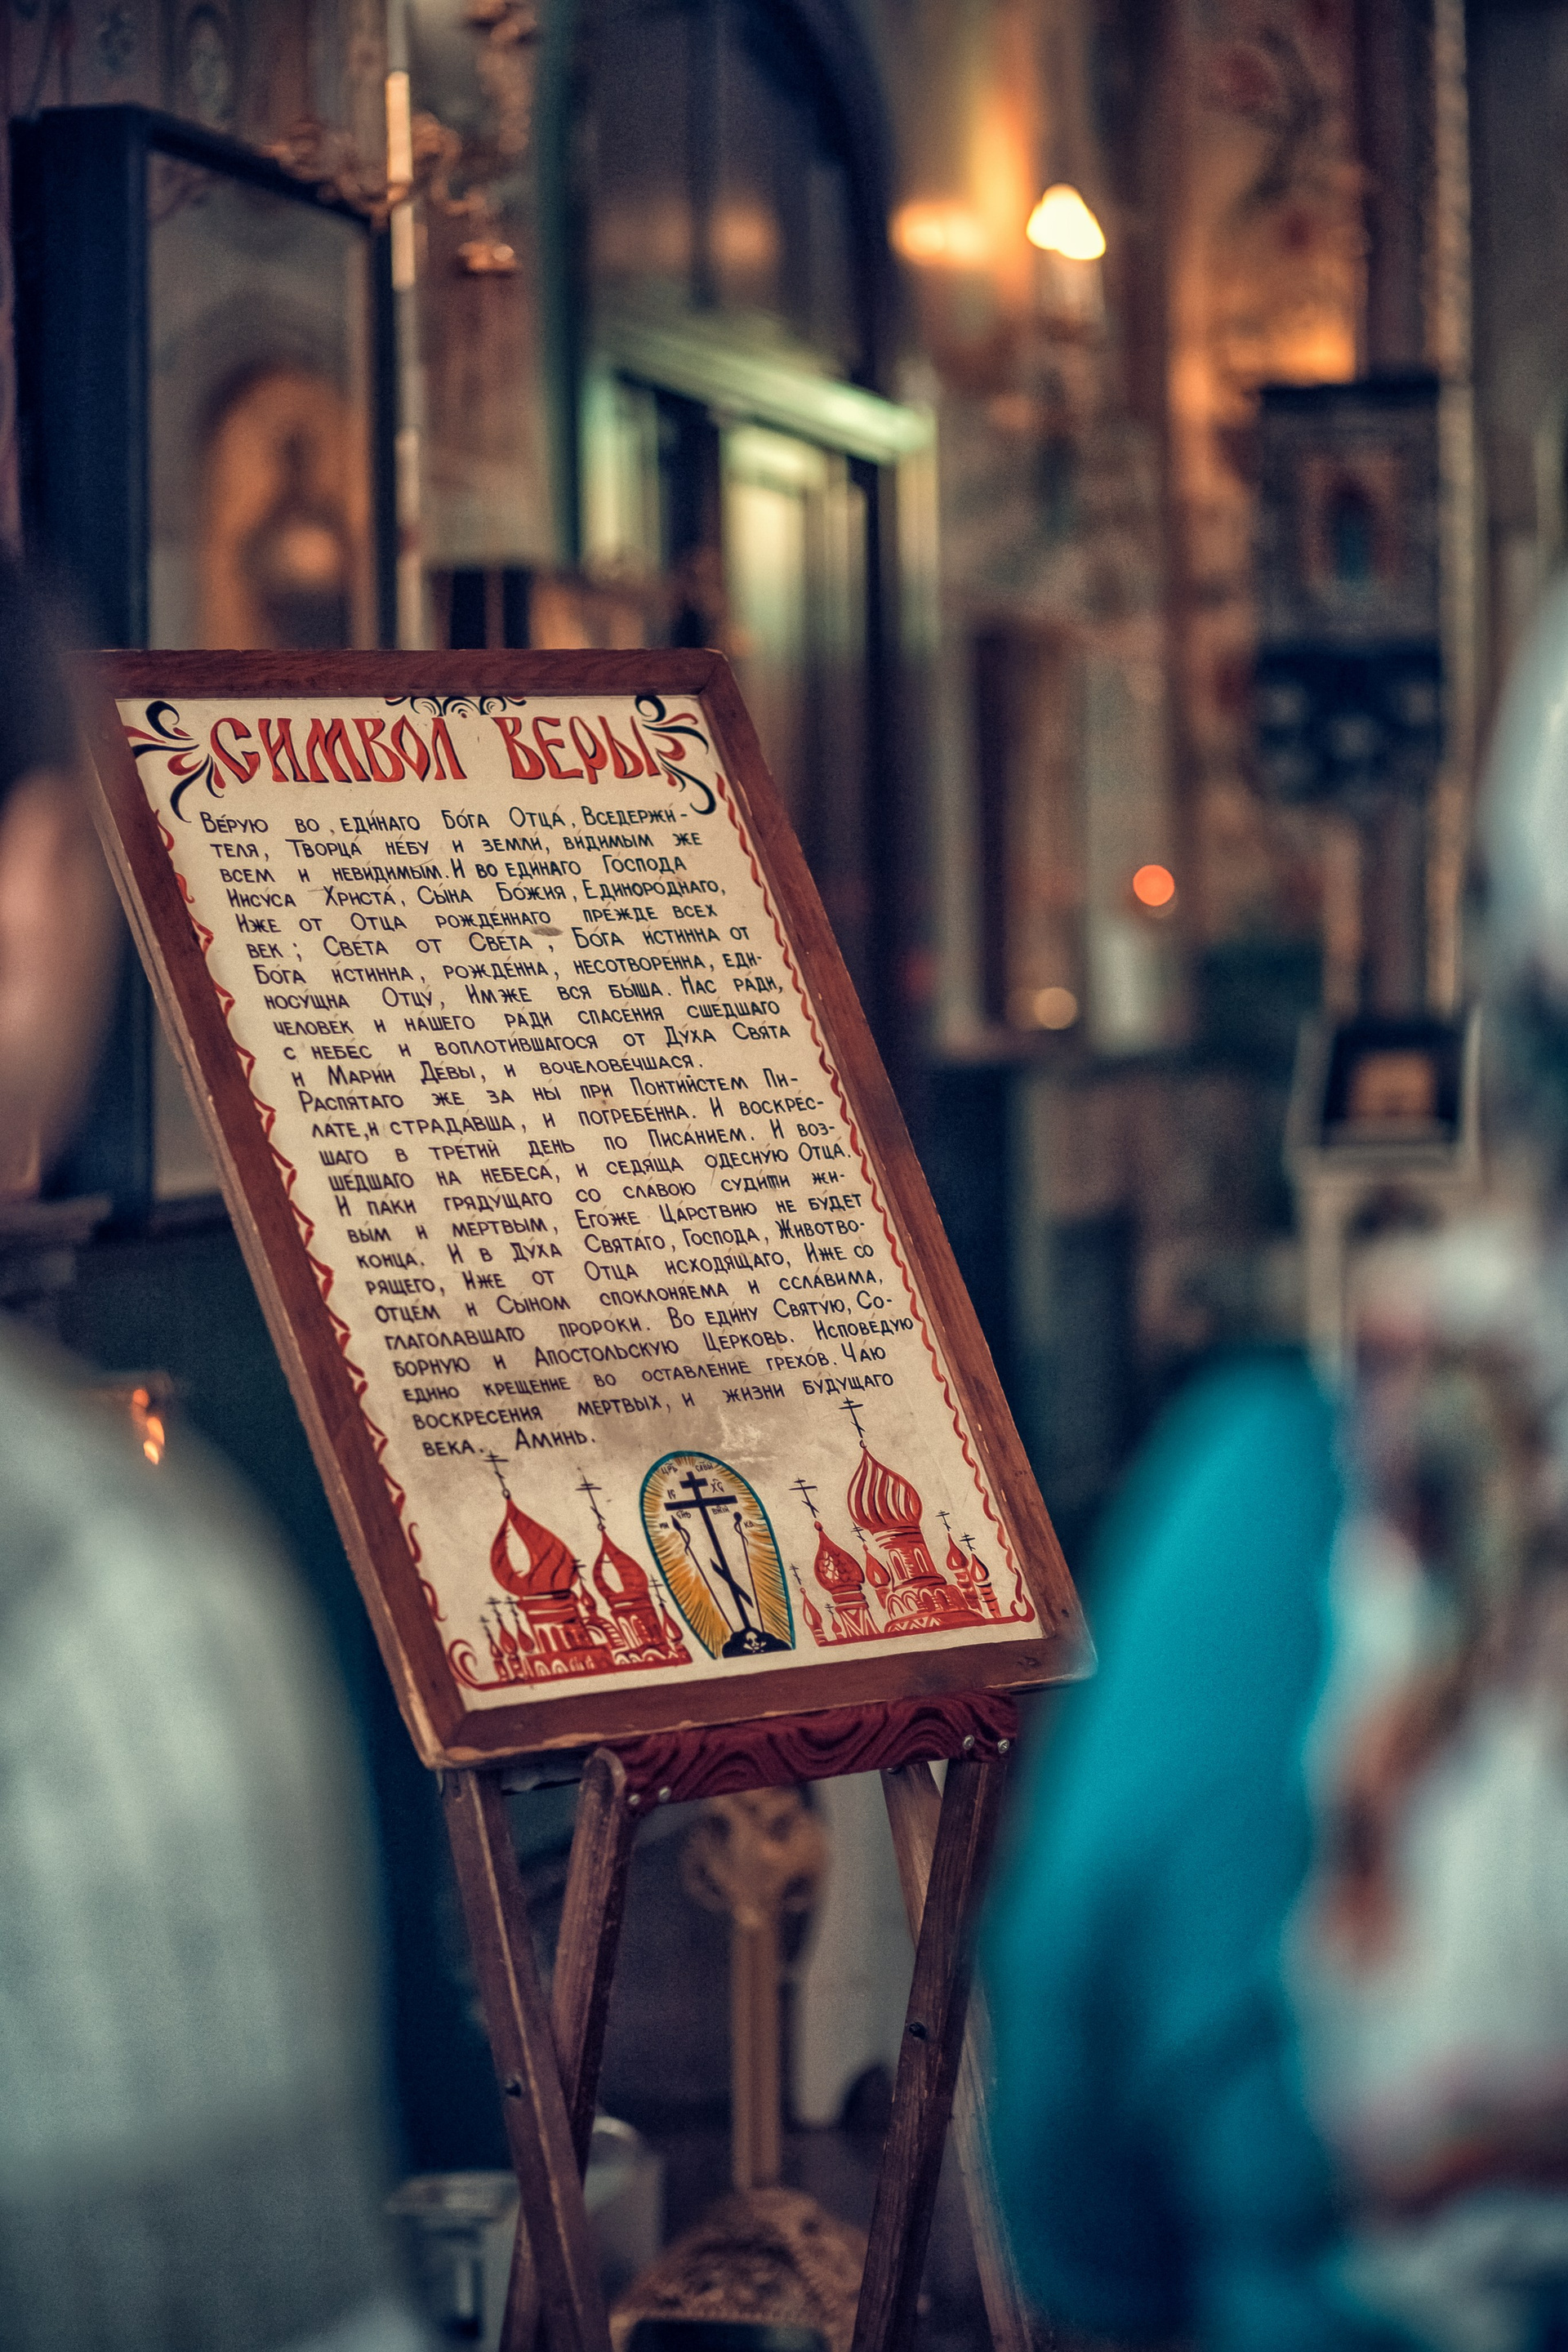 СИМВОЛ ВЕРЫ
ВЕ́РУЮ ВО ЕДИ́НАГО БО́ГА ОТЦА́, ВСЕДЕРЖИ́-
ТЕЛЯ, ТВОРЦА́ НЕ́БУ И ЗЕМЛИ́, ВИ́ДИМЫМ ЖЕ
ВСЕМ И НЕВИ́ДИМЫМ. И ВО ЕДИ́НАГО ГО́СПОДА
ИИСУ́СА ХРИСТА́, СЫ́НА БО́ЖИЯ, ЕДИНОРО́ДНАГО,
ИЖЕ ОТ ОТЦА РОЖДЕ́ННАГО ПРЕ́ЖДЕ ВСЕХ
ВЕК; СВЕ́ТА ОТ СВЕ́ТА, БО́ГА И́СТИННА ОТ
БО́ГА И́СТИННА, РОЖДЕ́ННА, НЕСОТВОРЕ́ННА, ЕДИ-
НОСУ́ЩНА ОТЦУ́, ИМЖЕ ВСЯ БЫ́ША. НАС РА́ДИ,
ЧЕЛОВЕ́К И НА́ШЕГО РА́ДИ СПАСЕ́НИЯ СШЕ́ДШАГО
С НЕБЕ́С И ВОПЛОТИ́ВШАГОСЯ ОТ ДУ́ХА СВЯ́ТА
И МАРИ́И ДЕ́ВЫ, И ВОЧЕЛОВЕ́ЧШАСЯ.
РАСПЯ́ТАГО ЖЕ ЗА НЫ́ ПРИ ПОНТИ́ЙСТЕМ ПИ-
ЛА́ТЕ, И СТРАДА́ВША, И ПОГРЕБЕ́ННА. И ВОСКРЕ́С-
ШАГО В ТРЕ́ТИЙ ДЕНЬ ПО ПИСА́НИЕМ. И ВОЗ-
ШЕ́ДШАГО НА НЕБЕСА́, И СЕДЯ́ЩА ОДЕСНУ́Ю ОТЦА́.
И ПА́КИ ГРЯДУ́ЩАГО СО СЛА́ВОЮ СУДИ́ТИ ЖИ-
ВЫ́М И МЕ́РТВЫМ, ЕГО́ЖЕ ЦА́РСТВИЮ НЕ БУ́ДЕТ
КОНЦА́. И В ДУ́ХА СВЯТА́ГО, ГО́СПОДА, ЖИВОТВО-
РЯ́ЩЕГО, И́ЖЕ ОТ ОТЦА́ ИСХОДЯ́ЩАГО, И́ЖЕ СО
ОТЦЕ́М И СЫ́НОМ СПОКЛОНЯ́ЕМА И ССЛА́ВИМА,
ГЛАГО́ЛАВШАГО ПРОРО́КИ. ВО ЕДИ́НУ СВЯТУ́Ю, СО-
БО́РНУЮ И АПО́СТОЛЬСКУЮ ЦЕ́РКОВЬ. ИСПОВЕ́ДУЮ
ЕДИ́НО КРЕЩЕ́НИЕ ВО ОСТАВЛЕ́НИЕ ГРЕХО́В. ЧА́Ю
ВОСКРЕСЕ́НИЯ МЕ́РТВЫХ, И ЖИ́ЗНИ БУ́ДУЩАГО
ВЕ́КА. АМИ́НЬ.